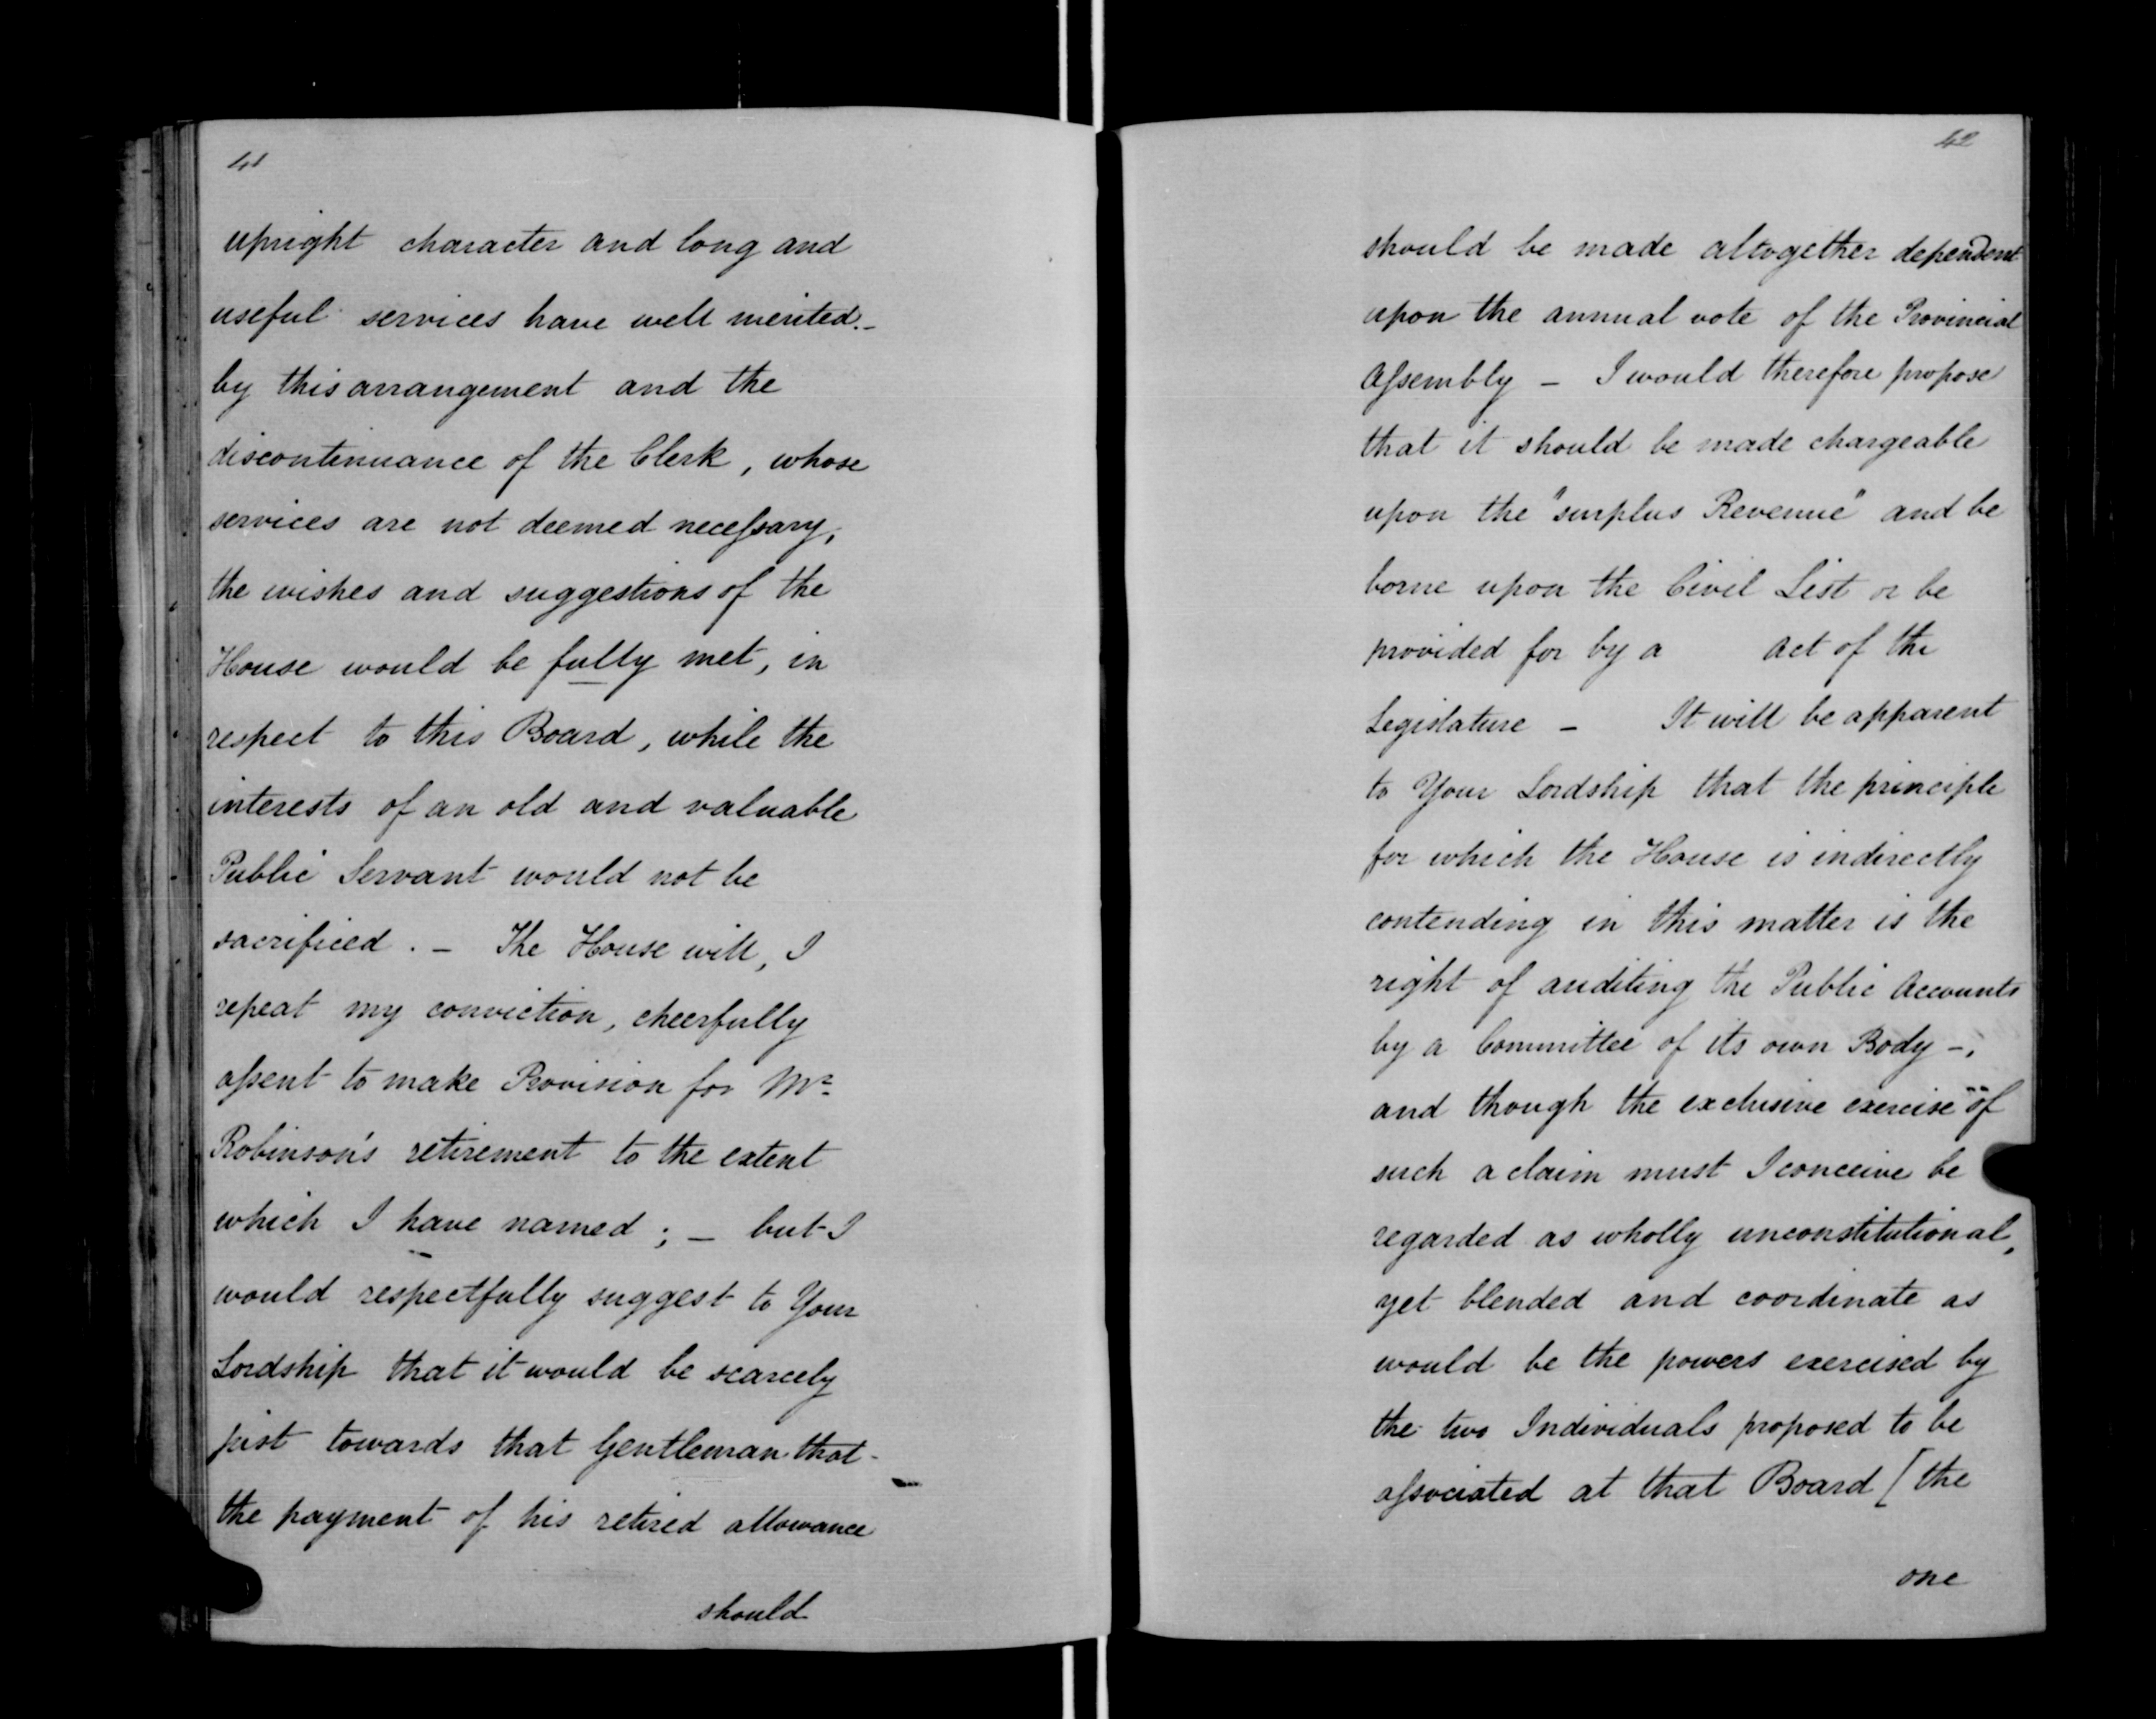 41
upright character and long and
useful services have well merited.-
by this arrangement and the
discontinuance of the Clerk, whose
services are not deemed necessary,
the wishes and suggestions of the
House would be fully met, in
respect to this Board, while the
interests of an old and valuable
Public Servant would not be
sacrificed. - The House will, I
repeat my conviction, cheerfully
assent to make Provision for Mr
Robinson's retirement to the extent
which I have named; - but I
would respectfully suggest to Your
Lordship that it would be scarcely
just towards that Gentleman that
the payment of his retired allowance
should
42
should be made altogether dependent
upon the annual vote of the Provincial
Assembly - I would therefore propose
that it should be made chargeable
upon the "surplus Revenue" and be
borne upon the Civil List or be
provided for by a act of the
Legislature - It will be apparent
to Your Lordship that the principle
for which the House is indirectly
contending in this matter is the
right of auditing the Public Accounts
by a Committee of its own Body -,
and though the exclusive exercise of
such a claim must I conceive be
regarded as wholly unconstitutional,
yet blended and coordinate as
would be the powers exercised by
the two Individuals proposed to be
associated at that Board [the
one